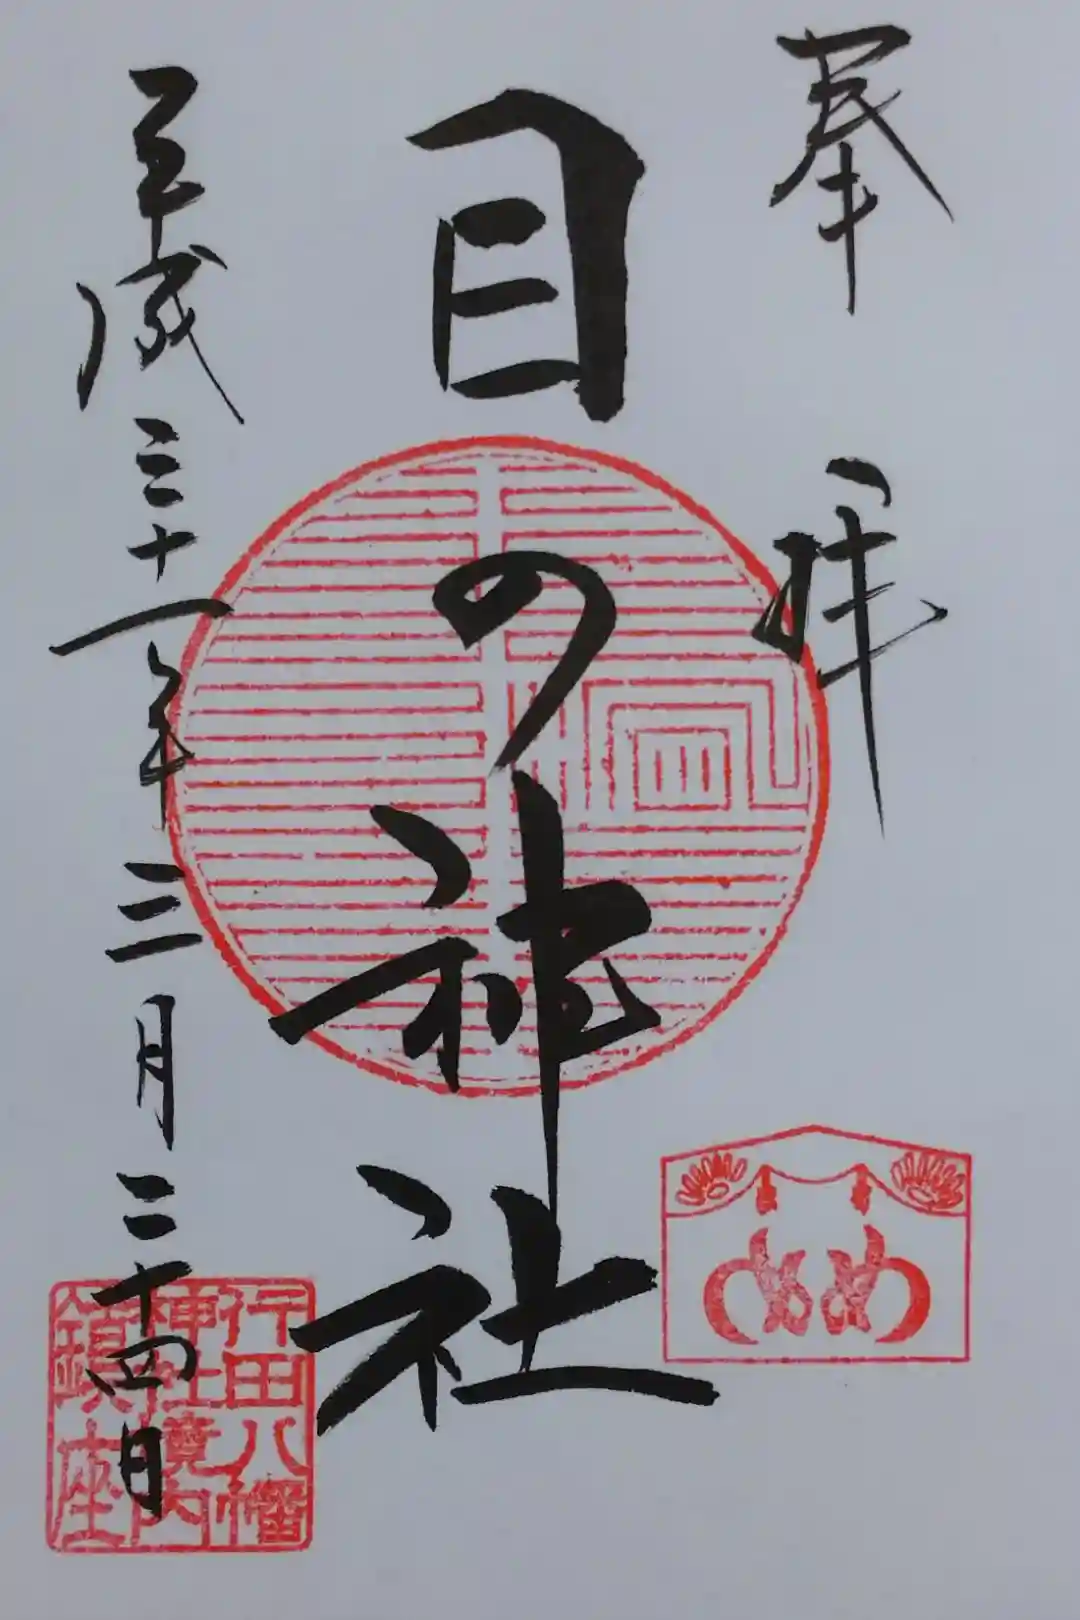 奉拝
目の神社
平成三十一年三月二十四日
行田八幡
神社境内
鎮座
め め